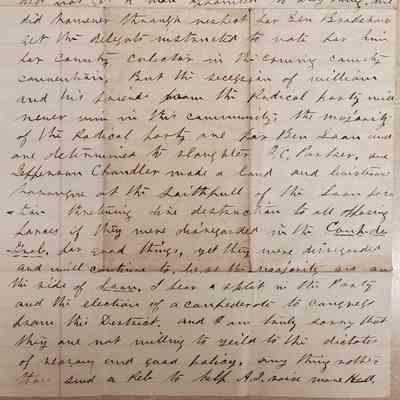 did however through respect for Gen Bradshaw
get the delegate instructed to vote for him
for County Colector in the coming County
convention. But the secession of William
and his friends from the Radical party will
never win in this community; the majority
of the Radical party are for Ben Loan and
are determined to slaughter J.C. Parker, one
Jefferson Chandler made a loud and boistrous
harangue at the faithfull of the Loan
thretning dire destruction to all oposing
forces if they were disregarded in the
Grab, for good things, yet they were disregarded
and will continue to be, as the majority are on
the side of Loan. I fear a split in the Party
and the election of a confederate to Congress
from this District. and I am truly sorry that
they are not willing to yeild to the dictates
of reason and good policy. any thing rather
than send a Reb to help A.J. raise more Hell.